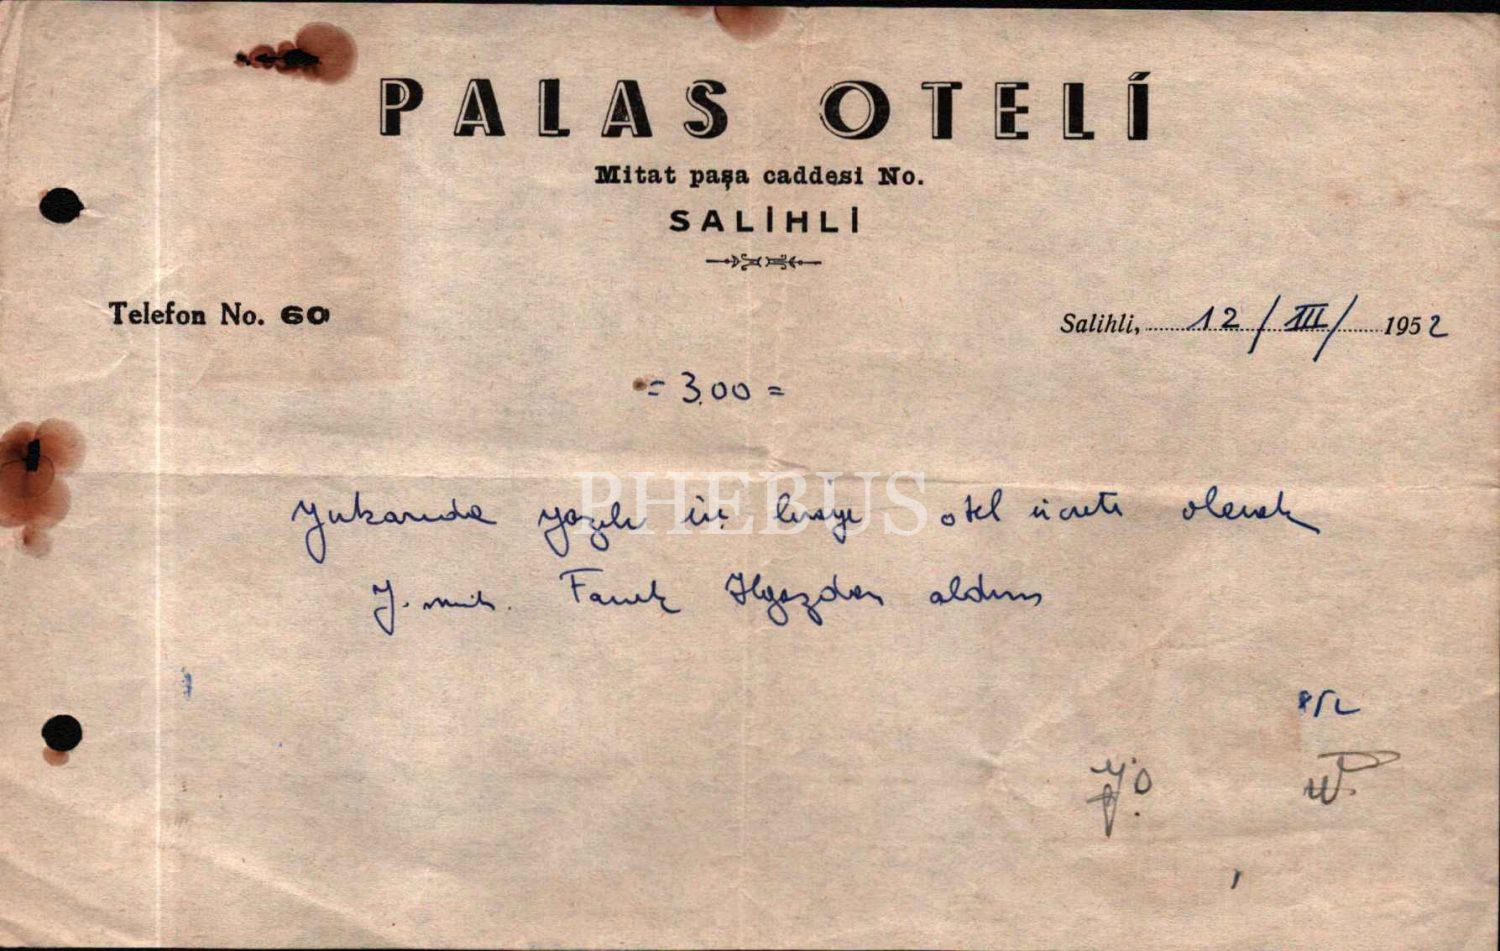 PALAS OTELİ
Mitat paşa caddesi No.
SALİHLİ
Telefon No. 60
Salihli, 12 / III / 1952
= 3.00 =
PHEBUS
Yukarıda yazılı üç lirayı otel ücreti olarak
Y. müh. Faruk Ilgazdan aldım